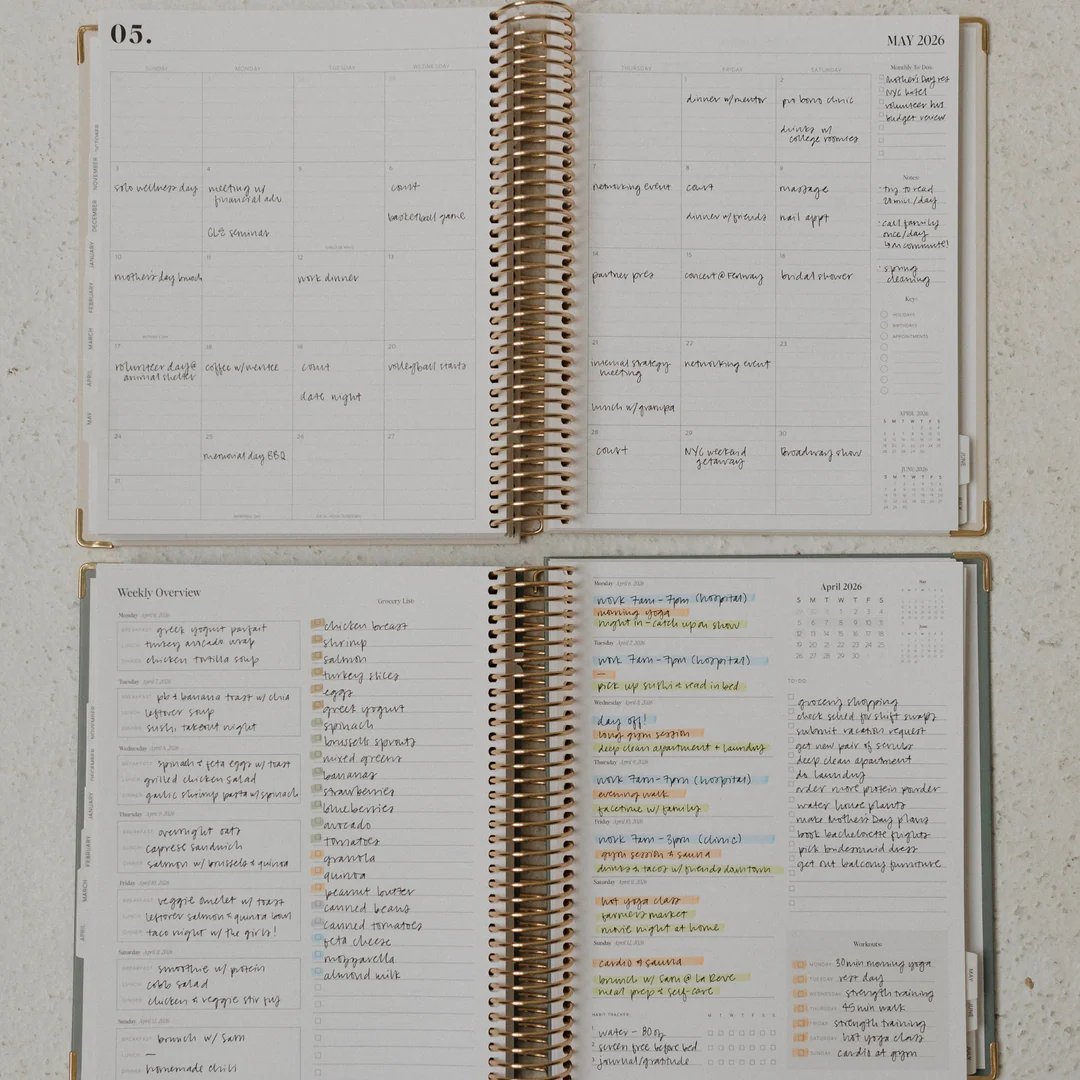 05.
SUNDAY MONDAY TUESDAY WEDNESDAY
3 4 5 6
solo wellness day
meeting w/
financial adv
CLE seminar
court
basketball game
10 11 12 13
mothers day brunch
work dinner
MOTHER'S DAY
17 18 19 20
volunteer day @
animal shelter
coffee w/ mentee
court
date night
volleyball starts
24 25 26 27
memorial day BBQ
31
MEMORIAL DAY
MAY 2026
THURSDAY FRIDAY SATURDAY
1 2
dinner w/ mentor
pro bono clinic
drinks w/
college roomies
7 8 9
networking event
court
dinner w/ friends
massage
nail appt
14 15 16
partner prep
concert @ Fenway
bridal shower
21 22 23
internal strategy
meeting
lunch w/ grandpa
networking event
28 29 30
court
NYC weekend
getaway
Broadway show
Monthly To Dos:
Mother's Day res
NYC hotel
volunteer hrs
budget review
Notes:
· try to read
20 min. / day
· call family
once / day
on commute!
· spring
cleaning
Key:
HOLIDAYS
BIRTHDAYS
APPOINTMENTS
APRIL 2026
S M T W T F S
JUNE 2026
S M T W T F S
NOVEMBER
DECEMBER
JANUARY
FEBRUARY
MARCH
APRIL
MAY
JUNE
Weekly Overview
Monday April 6, 2026
BREAKFAST greek yogurt parfait
LUNCH turkey avocado wrap
DINNER chicken tortilla soup
Tuesday April 7, 2026
BREAKFAST pb & banana toast w/ chia
LUNCH leftover soup
DINNER sushi takeout night
Wednesday April 8, 2026
BREAKFAST spinach & feta eggs w/ toast
LUNCH grilled chicken salad
DINNER garlic shrimp pasta w/ spinach
Thursday April 9, 2026
BREAKFAST overnight oats
LUNCH caprese sandwich
DINNER salmon w/ brussels & quinoa
Friday April 10, 2026
BREAKFAST veggie omelet w/ toast
LUNCH leftover salmon & quinoa bowl
DINNER taco night w/ the girls!
Saturday April 11, 2026
BREAKFAST smoothie w/ protein
LUNCH cobb salad
DINNER chicken & veggie stir fry
Sunday April 12, 2026
BREAKFAST brunch w/ Sam
LUNCH —
homemade chili
Grocery List:
chicken breast
shrimp
salmon
turkey slices
eggs
greek yogurt
spinach
brussels sprouts
mixed greens
bananas
strawberries
blueberries
avocado
tomatoes
granola
quinoa
peanut butter
canned beans
canned tomatoes
feta cheese
mozzarella
almond milk
Monday April 6, 2026
work 7am - 7pm (hospital)
morning yoga
night in - catch up on show
Tuesday April 7, 2026
work 7am - 7pm (hospital)
—
pick up sushi & read in bed
Wednesday April 8, 2026
day off!
long gym session
deep clean apartment + laundry
Thursday April 9, 2026
work 7am - 7pm (hospital)
evening walk
facetime w/ family
Friday April 10, 2026
work 7am - 3pm (clinic)
gym session & sauna
drinks & tacos w/ friends downtown
Saturday April 11, 2026
hot yoga class
farmers market
movie night at home
Sunday April 12, 2026
cardio & sauna
brunch w/ Sam @ La Reve
meal prep & self-care
HABIT TRACKER: M T W T F S S
1 water - 80 oz
2 screen free before bed
3 journal/gratitude
April 2026
S M T W T F S
1 2 3 4
5 6 7 8 9 10 11
12 13 14 15 16 17 18
19 20 21 22 23 24 25
26 27 28 29 30
May
June
TO-DO
grocery shopping
check sched for shift swaps
submit vacation request
get new pair of scrubs
deep clean apartment
do laundry
order more protein powder
water house plants
make Mother's Day plans
book bachelorette flights
pick bridesmaid dress
get out balcony furniture
Workouts:
MONDAY 30 min morning yoga
TUESDAY rest day
WEDNESDAY strength training
THURSDAY 45 min walk
FRIDAY strength training
SATURDAY hot yoga class
SUNDAY cardio at gym
NOVEMBER
DECEMBER
JANUARY
FEBRUARY
MARCH
APRIL
MAY
JUNE